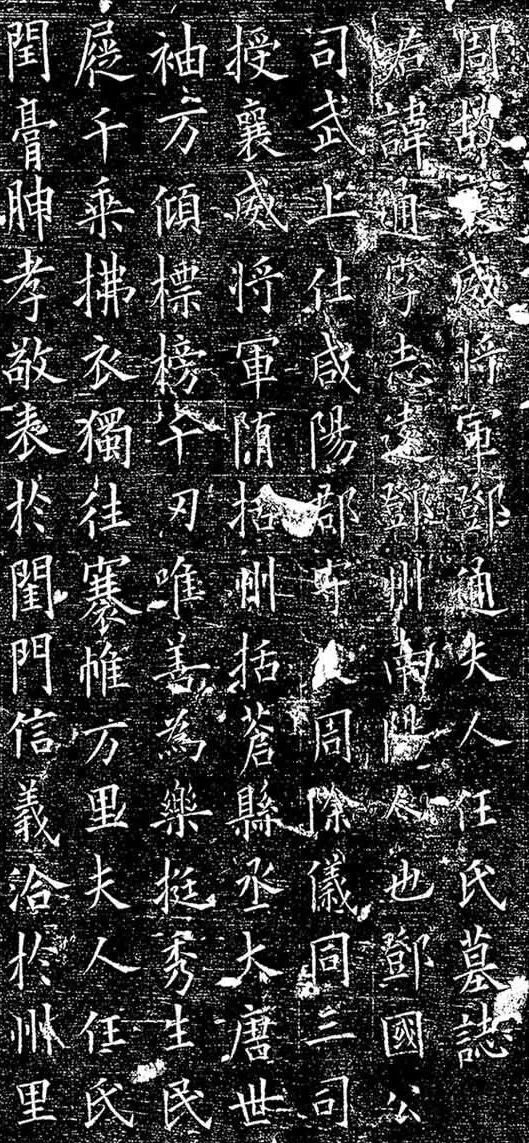 周故襄威将軍鄧通夫人任氏墓誌
君諱通字志遠鄧州南陽人也鄧國公
司武上仕咸陽郡守後周除儀同三司
授襄威将軍隋括州括蒼縣丞大唐世
袖方傾標榜千刃唯善為樂挺秀生民
屣千乘拂衣獨往褰帷万里夫人任氏
閏膏腴孝敬表於閨門信義洽於州里